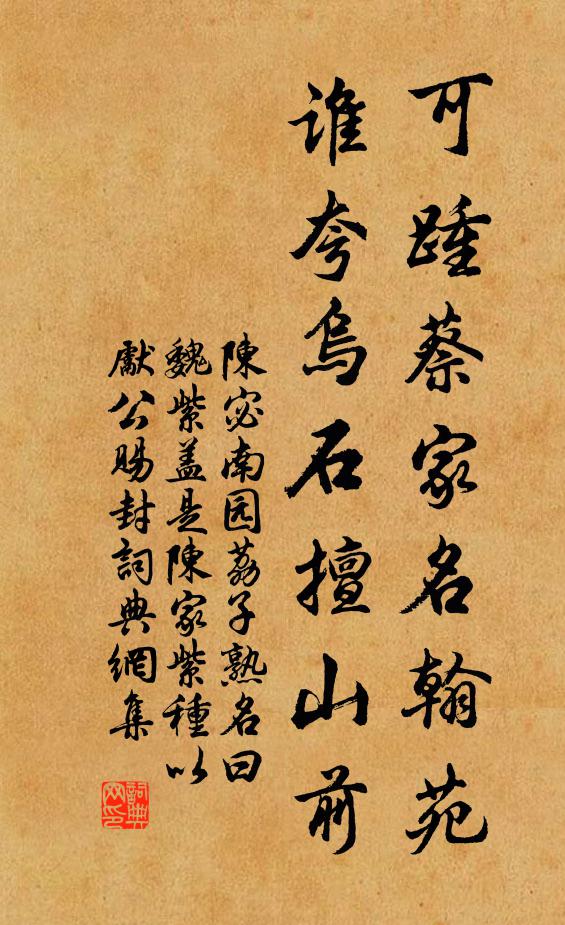 可踵蔡家名翰苑
谁夸烏石擅山前
陳宓南园荔子熟名曰
魏紫盖是陳家紫種以
獻公賜封詞典網集
詞典網印